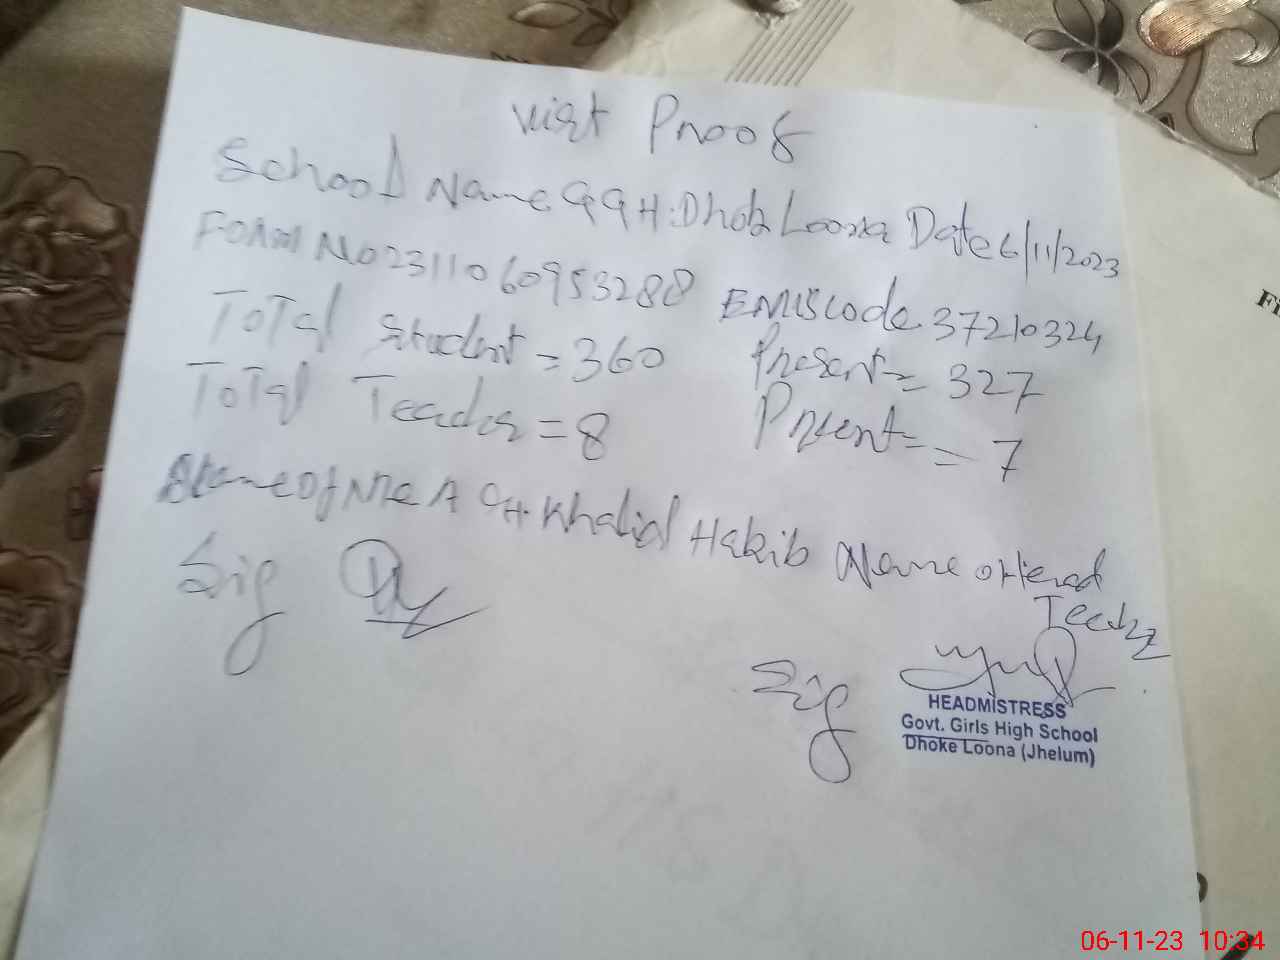 Visit Proof
School Name GGH.Dhok Loona Date 6/11/2023
Foam No 2311060953288 EMIS code 37210324
Total Student = 360 Present = 327
Total Teacher = 8 Present = 7
Name Of MEA CH. Khalid Habib Name of Head
Teacher
Sig
Sig
HEADMISTRESS
Govt. Girls High School
Dhoke Loona (Jhelum)
06-11-23 10:34